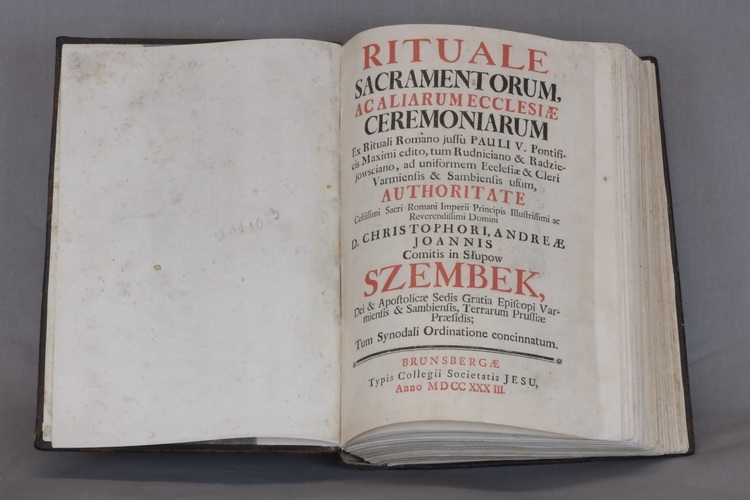 RITUALE
SACRAMENTORUM,
AC ALIARUM ECCLESIÆ
CEREMONIARUM
Ex Rituali Romano jussu PAULI V. Pontifi-
cis Maximi edito, tum Rudniciano & Radzie-
jowsciano, ad uniformem Ecclesiæ & Cleri
Varmiensis & Sambiensis usum,
AUTHORITATE
Celsissimi Sacri Romani Imperii Principis Illustrissimi ac
Reverendissimi Domini
D. CHRISTOPHORI, ANDREÆ
JOANNIS
Comitis in Słupow
SZEMBEK,
Dei & Apostolicæ Sedis Gratia Episcopi Var-
miensis & Sambiensis, Terrarum Prussiæ
Præsidis;
Tum Synodali Ordinatione concinnatum.
BRUNSBERGÆ
Typis Collegii Societatis JESU,
Anno MDCC XXX III.